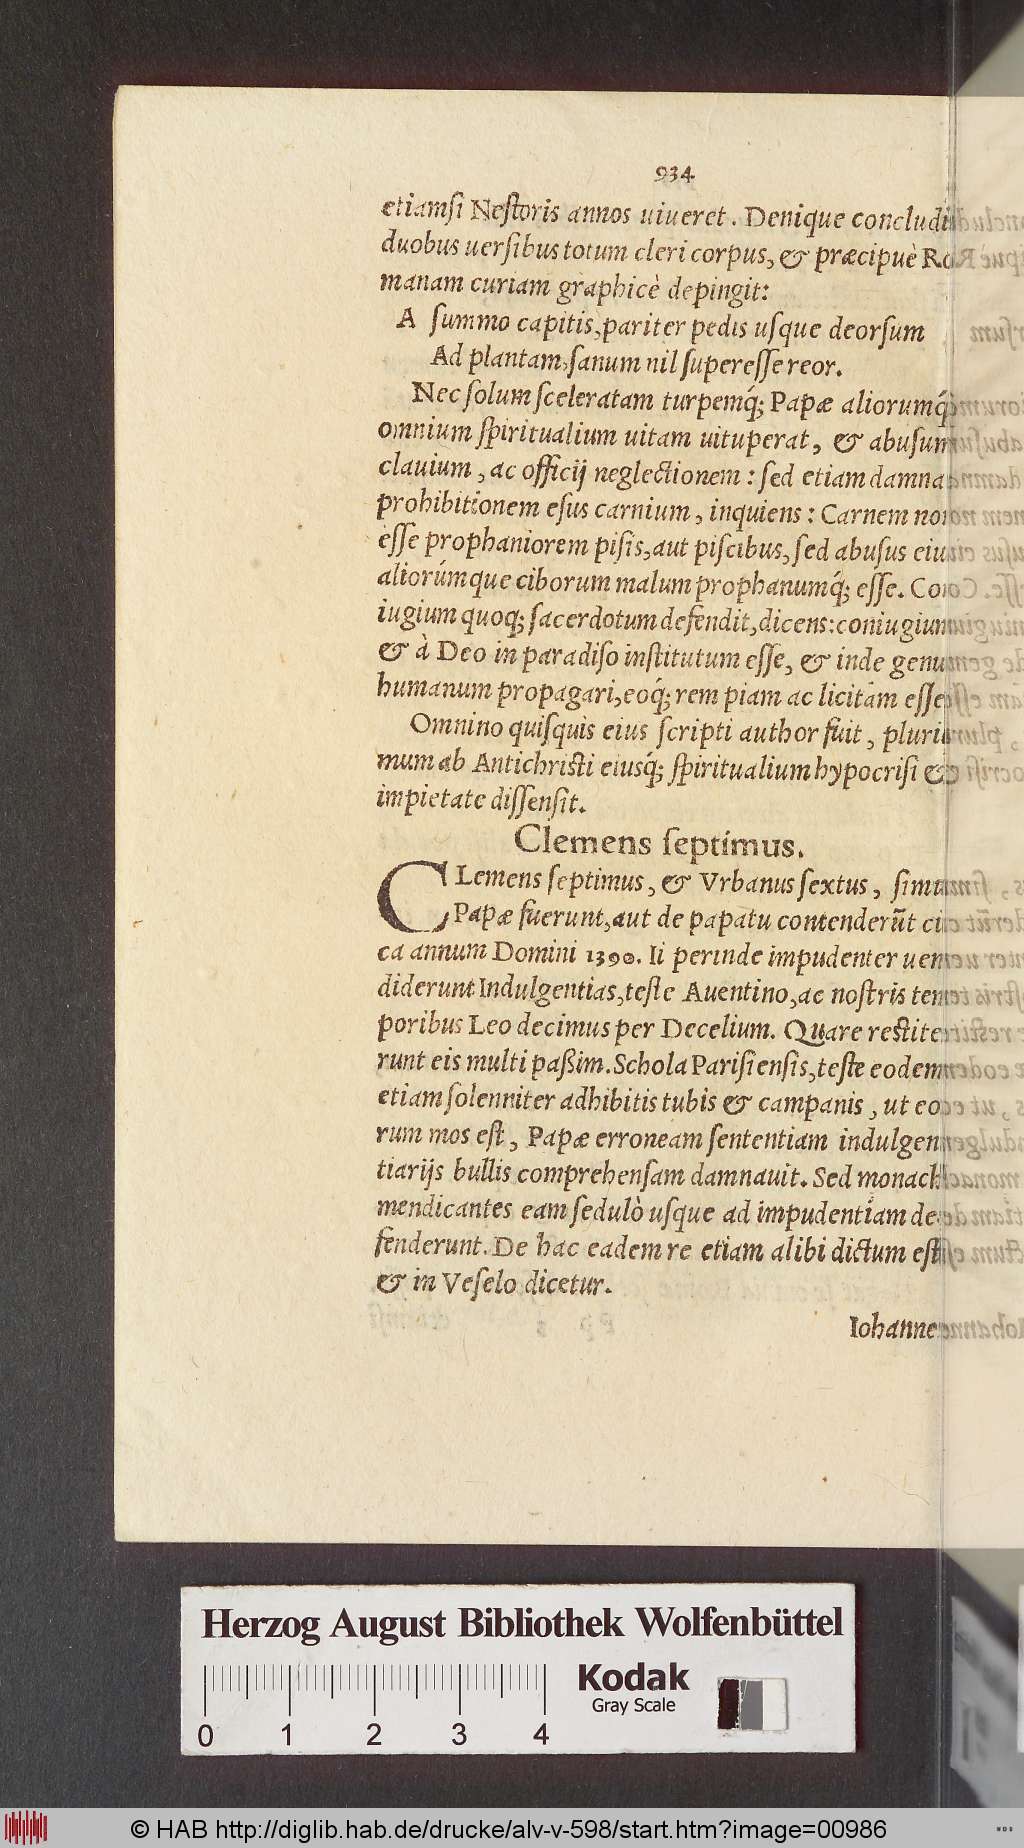 934
etiamſi Neſtoris annos uiueret. Denique concludit
duobus uerſibus totum cleri corpus, & præcipuè Ro
manam curiam graphicè depingit:
A ſummo capitis, pariter pedis uſque deorſum
Ad plantam, ſanum nil ſupereſſe reor.
Nec ſolum ſceleratam turpemq́; Papæ aliorumq́;
omnium ſpiritualium uitam uituperat, & abuſum
clauium, ac officij neglectionem: ſed etiam damnat
prohibitionem eſus carnium, inquiens: Carnem non
eſſe prophaniorem piſis, aut piſcibus, ſed abuſus eius
aliorúmque ciborum malum prophanumq́; eſſe. Con
iugium quoq; ſacerdotum defendit, dicens: coniugium
& à Deo in paradiſo inſtitutum eſſe, & inde genus
humanum propagari, eoq́; rem piam ac licitam eſſe.
Omnino quiſquis eius ſcripti author fuit, pluri
mum ab Antichriſti eiusq́; ſpiritualium hypocriſi &
impietate diſſenſit.
Clemens ſeptimus.
CLemens ſeptimus, & Vrbanus ſextus, ſimul
Papæ fuerunt, aut de papatu contenderūt cir
ca annum Domini 1390. Ii perinde impudenter uen
diderunt Indulgentias, teſte Auentino, ac noſtris tem
poribus Leo decimus per Decelium. Quare reſtite
runt eis multi paßim. Schola Pariſienſis, teſte eodem
etiam ſolenniter adhibitis tubis & campanis, ut eo
rum mos eſt, Papæ erroneam ſententiam indulgen
tiarijs bullis comprehenſam damnauit. Sed monachi
mendicantes eam ſedulò uſque ad impudentiam de
fenderunt. De hac eadem re etiam alibi dictum eſt
& in Veſelo dicetur.
Iohannes
Herzog August Bibliothek Wolfenbüttel
Kodak
Gray Scale
0 1 2 3 4
© HAB http://diglib.hab.de/drucke/alv-v-598/start.htm?image=00986